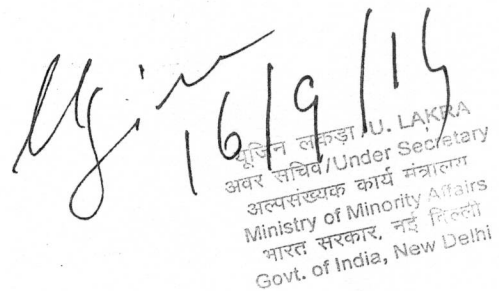 Ugin
16/9/15
यूजिन लकड़ा/U. LAKRA
अवर सचिव/Under Secretary
अल्पसंख्यक कार्य मंत्रालय
Ministry of Minority Affairs
भारत सरकार, नई दिल्ली
Govt. of India, New Delhi